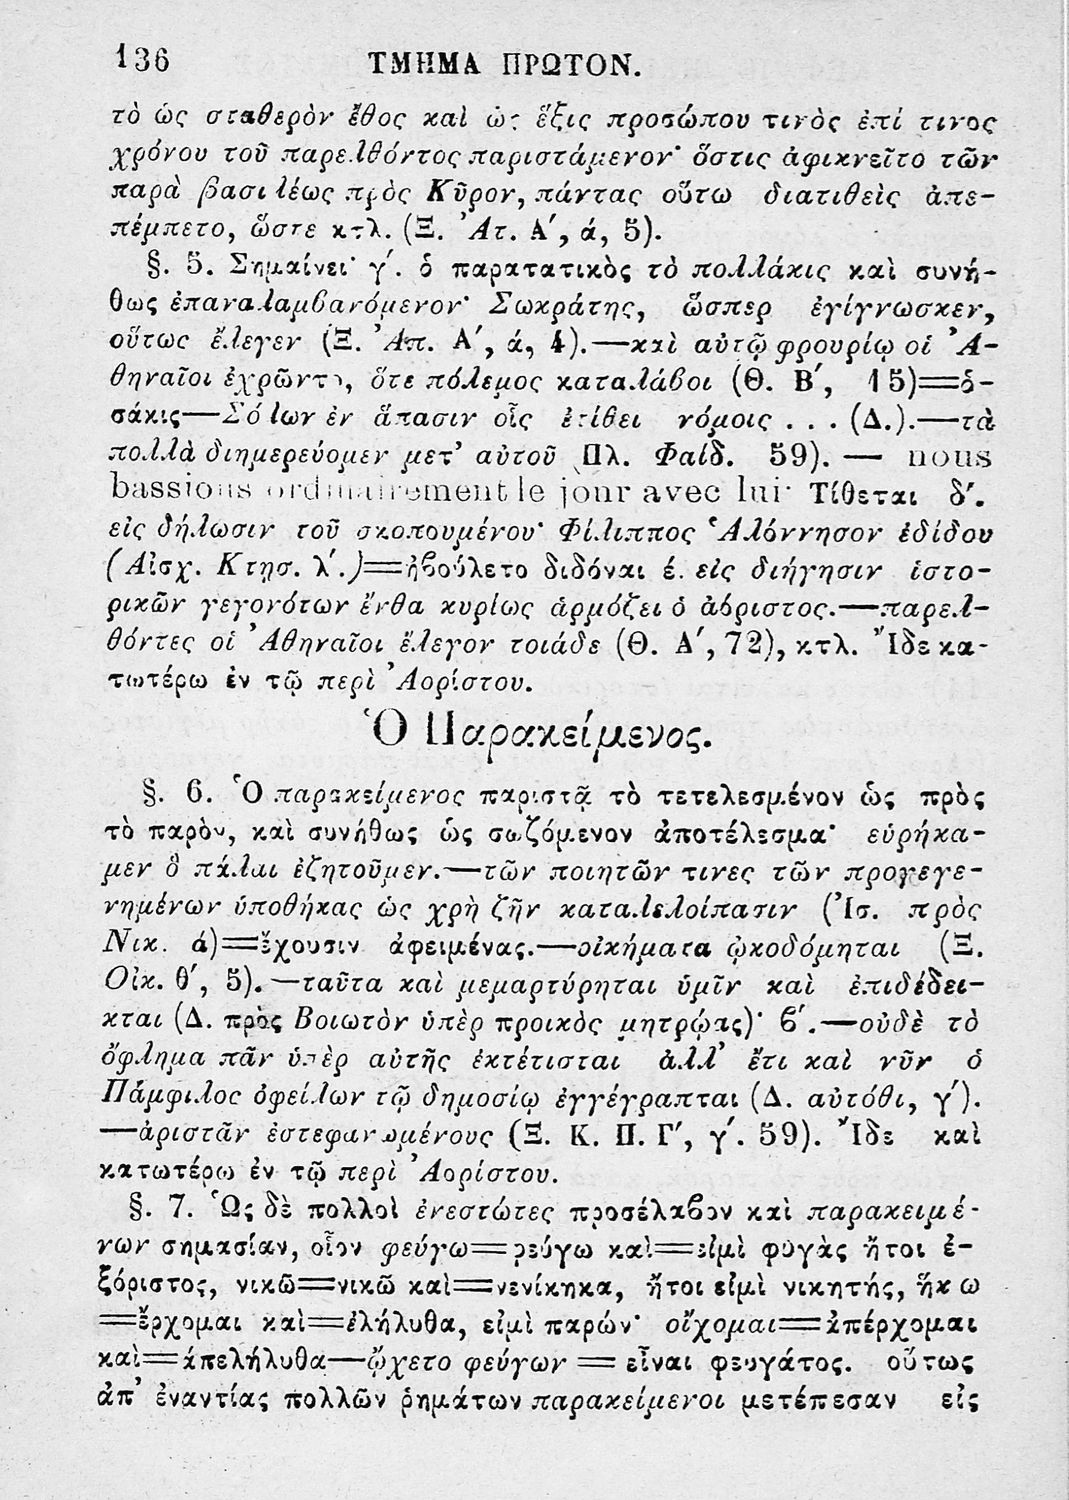 136 ΤΜΗΜΑ ΠΡΩΤΟΝ.
τὸ ὡς σταθερὸν ἔθος καὶ ὡς ἕξις προσώπου τινὸς ἐπί τινος
χρόνου τοῦ παρελθόντος παριστάμενον· ὅστις ἀφικνεῖτο τῶν
παρὰ βασιλέως πρὸς Κῦρον, πάντας οὕτω διατιθεὶς ἀπε-
πέμπετο, ὥστε κτλ. (Ξ. Ἀτ. Α΄, ά, 5).
§. 5. Σημαίνει· γ΄. ὁ παρατατικὸς τὸ πολλάκις καὶ συνή-
θως ἐπαναλαμβανόμενον· Σωκράτης, ὥσπερ ἐγίγνωσκεν,
οὕτως ἔλεγεν (Ξ. Ἀπ. Α΄, ά, 4).—καὶ αὐτῷ φρουρίῳ οἱ Ἀ-
θηναῖοι ἐχρῶντο, ὅτε πόλεμος καταλάβοι (Θ. Β΄, 15)=ὁ-
σάκις—Σόλων ἐν ἅπασιν οἷς ἐτίθει νόμοις . . . (Δ.).—τὰ
πολλὰ διημερεύομεν μετ’ αὐτοῦ Πλ. Φαίδ. 59). — nous
bassions ordinairement le jour avec lui· Τίθεται δ΄.
εἰς δήλωσιν τοῦ σκοπουμένου· Φίλιππος Ἁλόννησον ἐδίδου
(Αἰσχ. Κτησ. λ΄.)=ἠβούλετο διδόναι έ. εἰς διήγησιν ἱστο-
ρικῶν γεγονότων ἔνθα κυρίως ἁρμόζει ὁ ἀόριστος.—παρελ-
θόντες οἱ Ἀθηναῖοι ἔλεγον τοιάδε (Θ. Α΄, 72), κτλ. Ἴδε κα-
τωτέρω ἐν τῷ περὶ Ἀορίστου.
Ὁ Παρακείμενος.
§. 6. Ὁ παρακείμενος παριστᾷ τὸ τετελεσμένον ὡς πρὸς
τὸ παρὸν, καὶ συνήθως ὡς σωζόμενον ἀποτέλεσμα· εὑρήκα-
μεν ὃ πάλαι ἐζητοῦμεν.—τῶν ποιητῶν τινες τῶν προγεγε-
νημένων ὑποθήκας ὡς χρὴ ζῆν καταλελοίπασιν (Ἰσ. πρὸς
Νικ. ά)=ἔχουσιν ἀφειμένας.—οἰκήματα ᾠκοδόμηται (Ξ.
Οἰκ. θ΄, 5).—ταῦτα καὶ μεμαρτύρηται ὑμῖν καὶ ἐπιδέδει-
κται (Δ. πρὸς Βοιωτὸν ὑπὲρ προικὸς μητρῴας)· β΄.—οὐδὲ τὸ
ὄφλημα πᾶν ὑπὲρ αὐτῆς ἐκτέτισται ἀλλ’ ἔτι καὶ νῦν ὁ
Πάμφιλος ὀφείλων τῷ δημοσίῳ ἐγγέγραπται (Δ. αὐτόθι, γ΄).
—ἀριστᾶν ἐστεφανωμένους (Ξ. Κ. Π. Γ΄, γ΄. 59). Ἴδε καὶ
κατωτέρω ἐν τῷ περὶ Ἀορίστου.
§. 7. Ὡς δὲ πολλοὶ ἐνεστώτες προσέλαβον καὶ παρακειμέ-
νων σημασίαν, οἷον φεύγω=φεύγω καὶ=εἰμὶ φυγὰς ἤτοι ἐ-
ξόριστος, νικῶ=νικῶ καὶ=νενίκηκα, ἤτοι εἰμὶ νικητής, ἥκω
=ἔρχομαι καὶ=ἐλήλυθα, εἰμὶ παρών· οἴχομαι=ἀπέρχομαι
καὶ=ἀπελήλυθα—ᾤχετο φεύγων = εἶναι φευγάτος. οὕτως
ἀπ’ ἐναντίας πολλῶν ῥημάτων παρακείμενοι μετέπεσαν εἰς